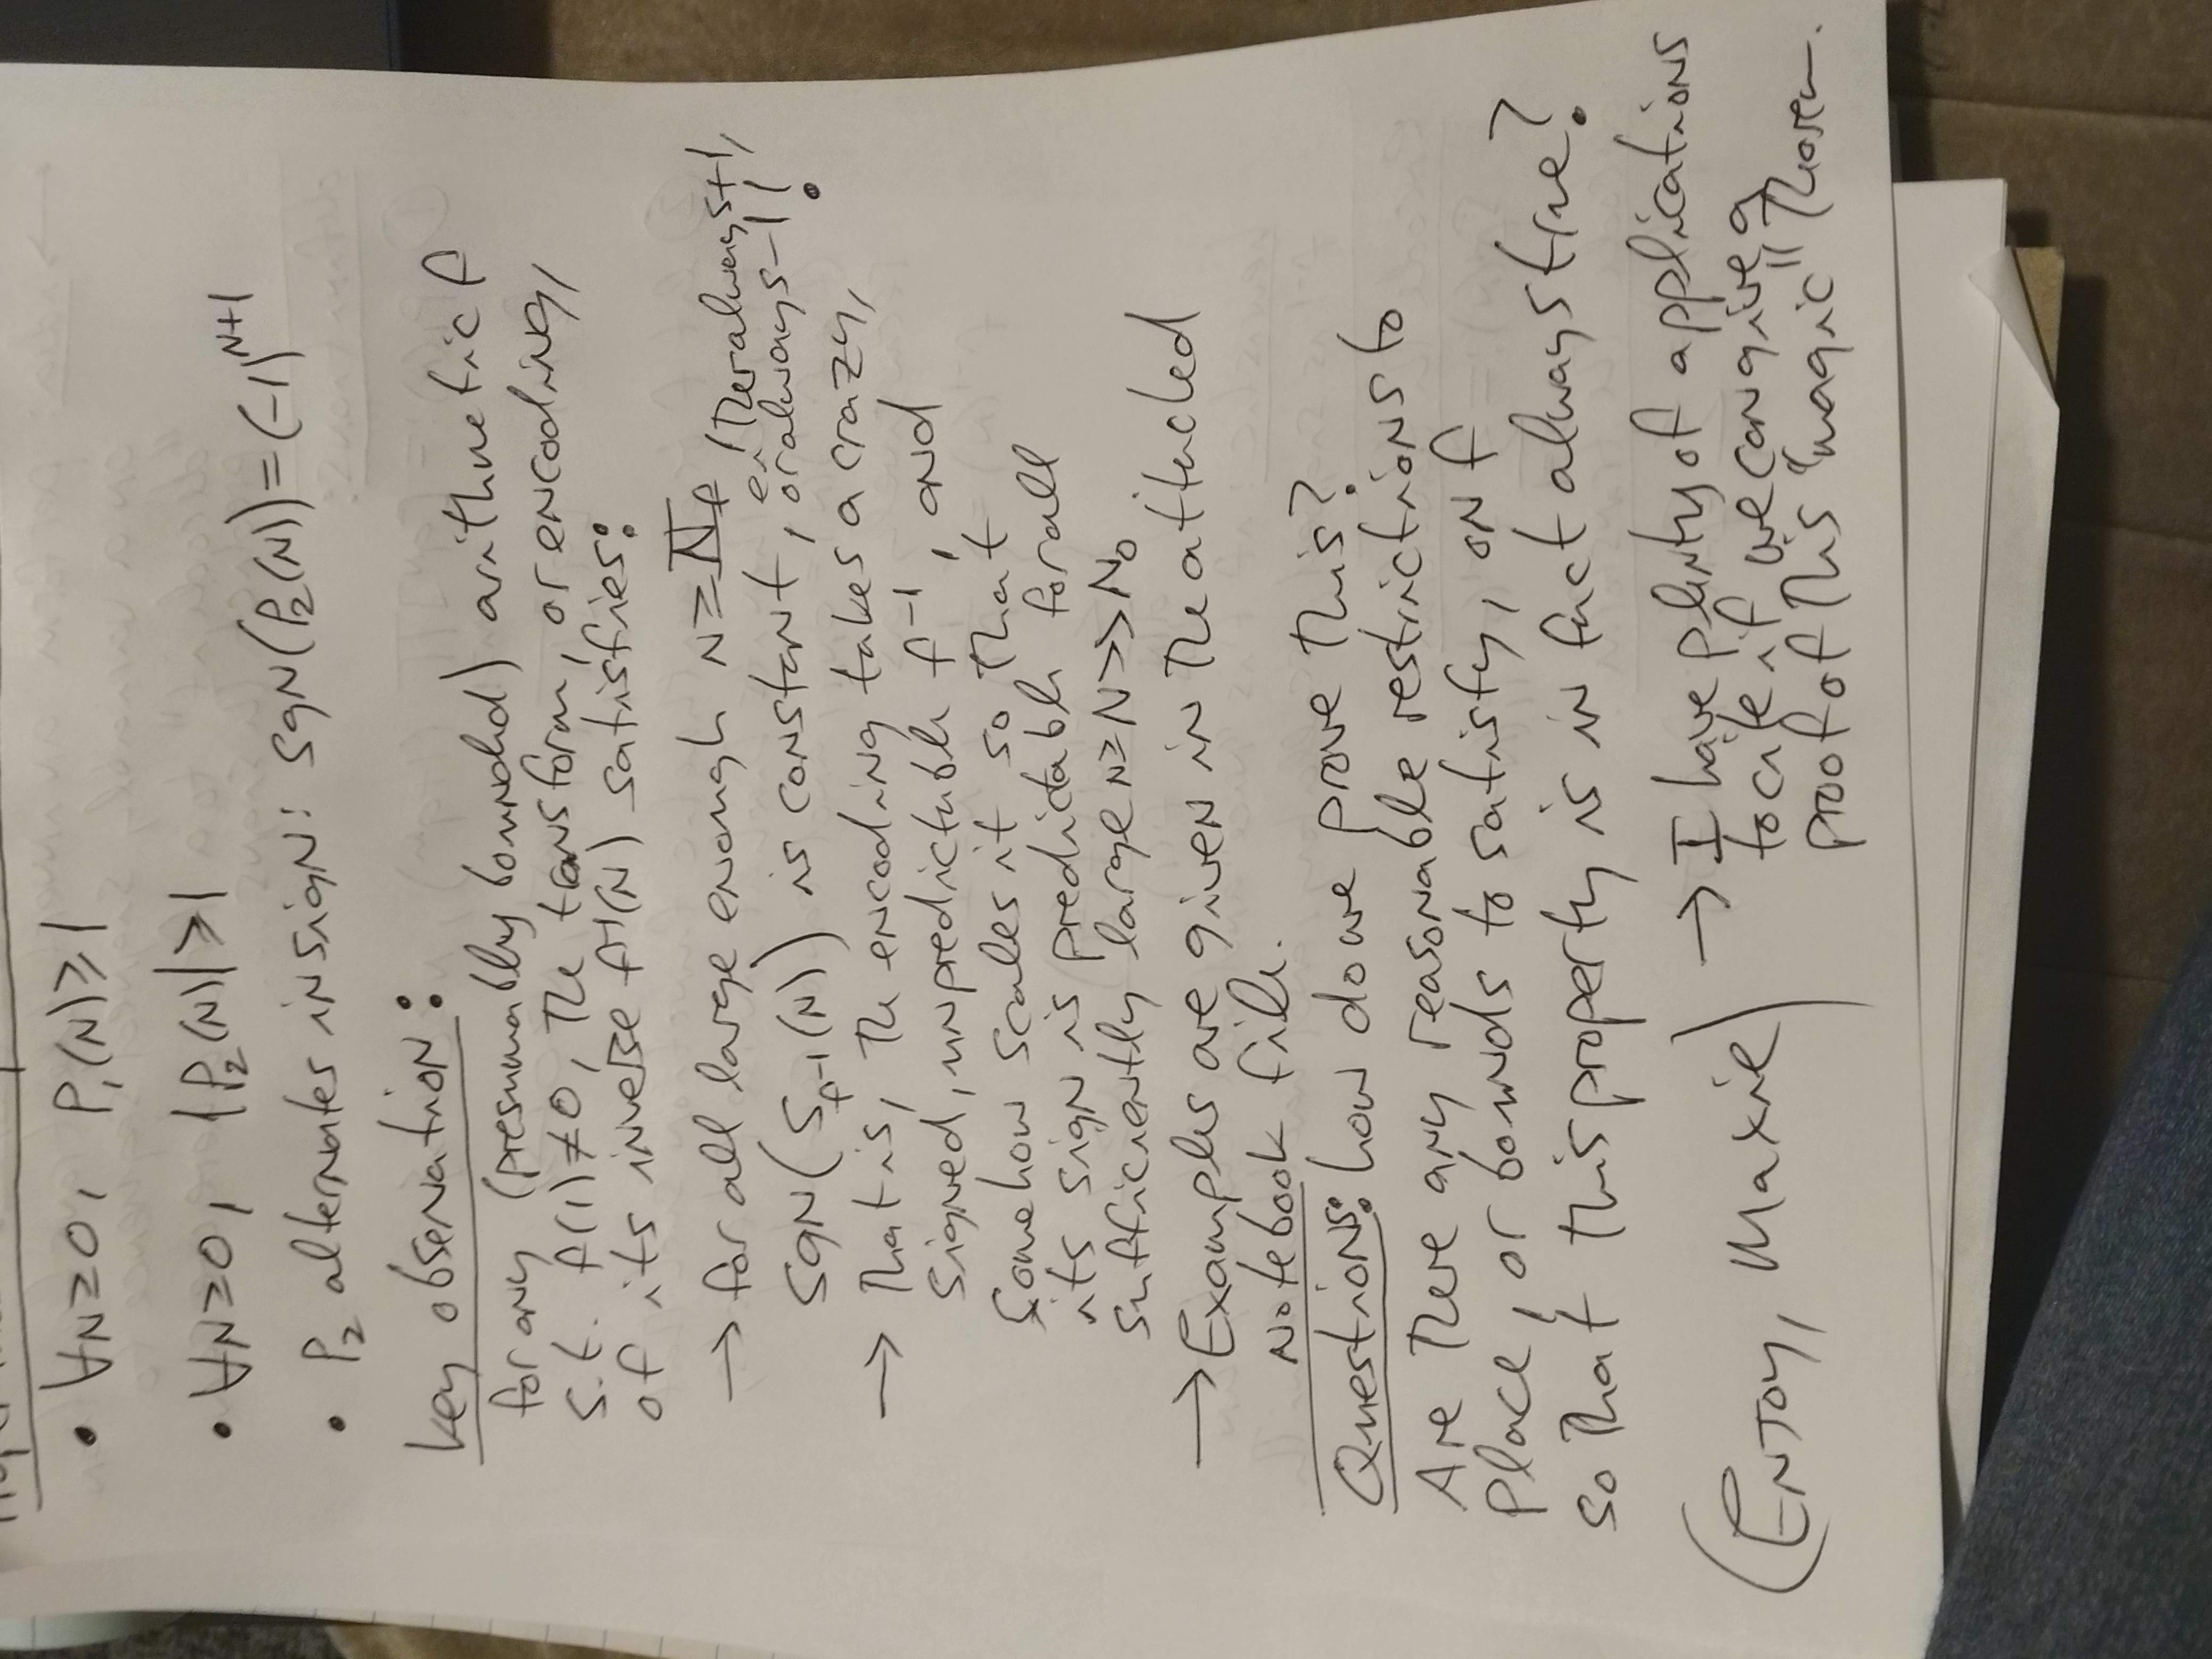 • ∀N≥0, P₁(N)≥1
• ∀N≥0, |P₂(N)|≥1
• P₂ alternates in sign: sgn(P₂(N))=(-1)^{N+1}
key observation:
for any (presumably bounded) arithmetic f
s.t. f(1)≠0, The transform, or encoding,
of its inverse f⁻¹(N) satisfies:
→ for all large enough N≥N_f
sgn(S_{f⁻¹}(N)) is constant, either always +1,
or always -1!
→ That is, The encoding takes a crazy,
signed, unpredictable f⁻¹, and
somehow scales it so That
its sign is predictable for all
sufficiently large N≥N>>N₀.
→ Examples are given in The attached
Notebook file.
Questions: how do we prove This?
Are There any reasonable restrictions to
place, or bounds to satisfy, on f
so That This property is in fact always true?
(Enjoy, Maxie)
→ I have plenty of applications
to cite if we can give a
proof of This "magic" Theorem.